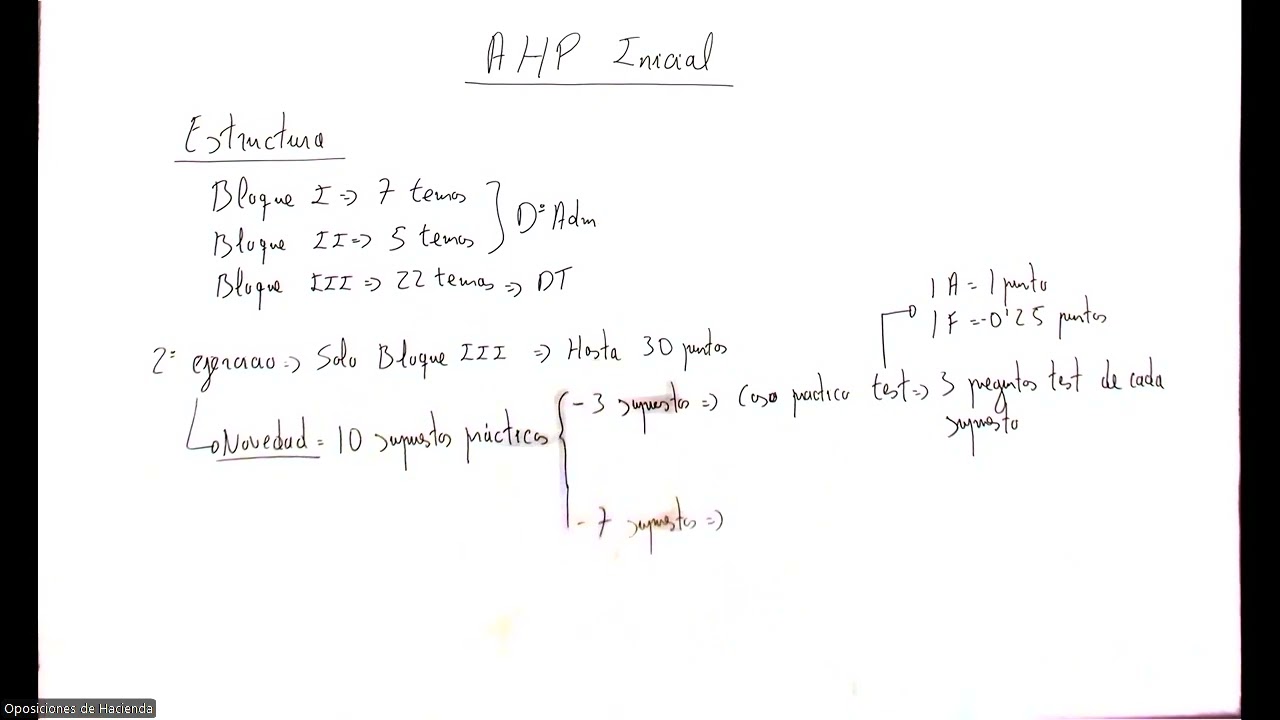 AHP Inicial
Estructura
Bloque I => 7 temas
Bloque II => 5 temas
} Dº Adm
Bloque III => 22 temas => DT
1 A = 1 punto
1 F = -0'25 puntos
2º ejercicio => Solo Bloque III => Hasta 30 puntos
- 3 supuestos => Caso practico test => 3 preguntas test de cada
supuesto
Novedad = 10 supuestos prácticos {
- 7 supuestos =>
Oposiciones de Hacienda